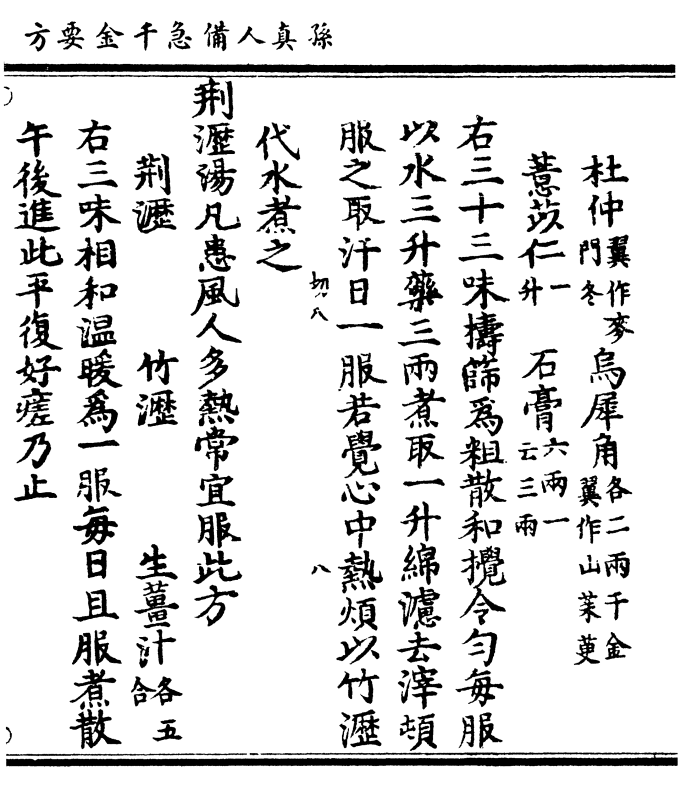 孫真人備急千金要方
杜仲翼作麥門冬 烏犀角各二兩千金翼作山茱萸
薏苡仁一升 石膏六兩一云三兩
右三十三味擣篩爲粗散和攪令勻每服
以水三升藥三兩煮取一升綿濾去滓頓
服之取汗日一服若覺心中熱煩以竹瀝
代水煮之
切八
八
荆瀝湯凡患風人多熱常宜服此方
荆瀝 竹瀝 生薑汁各五合
右三味相和温暖爲一服每日且服煮散
午後進此平復好瘥乃止